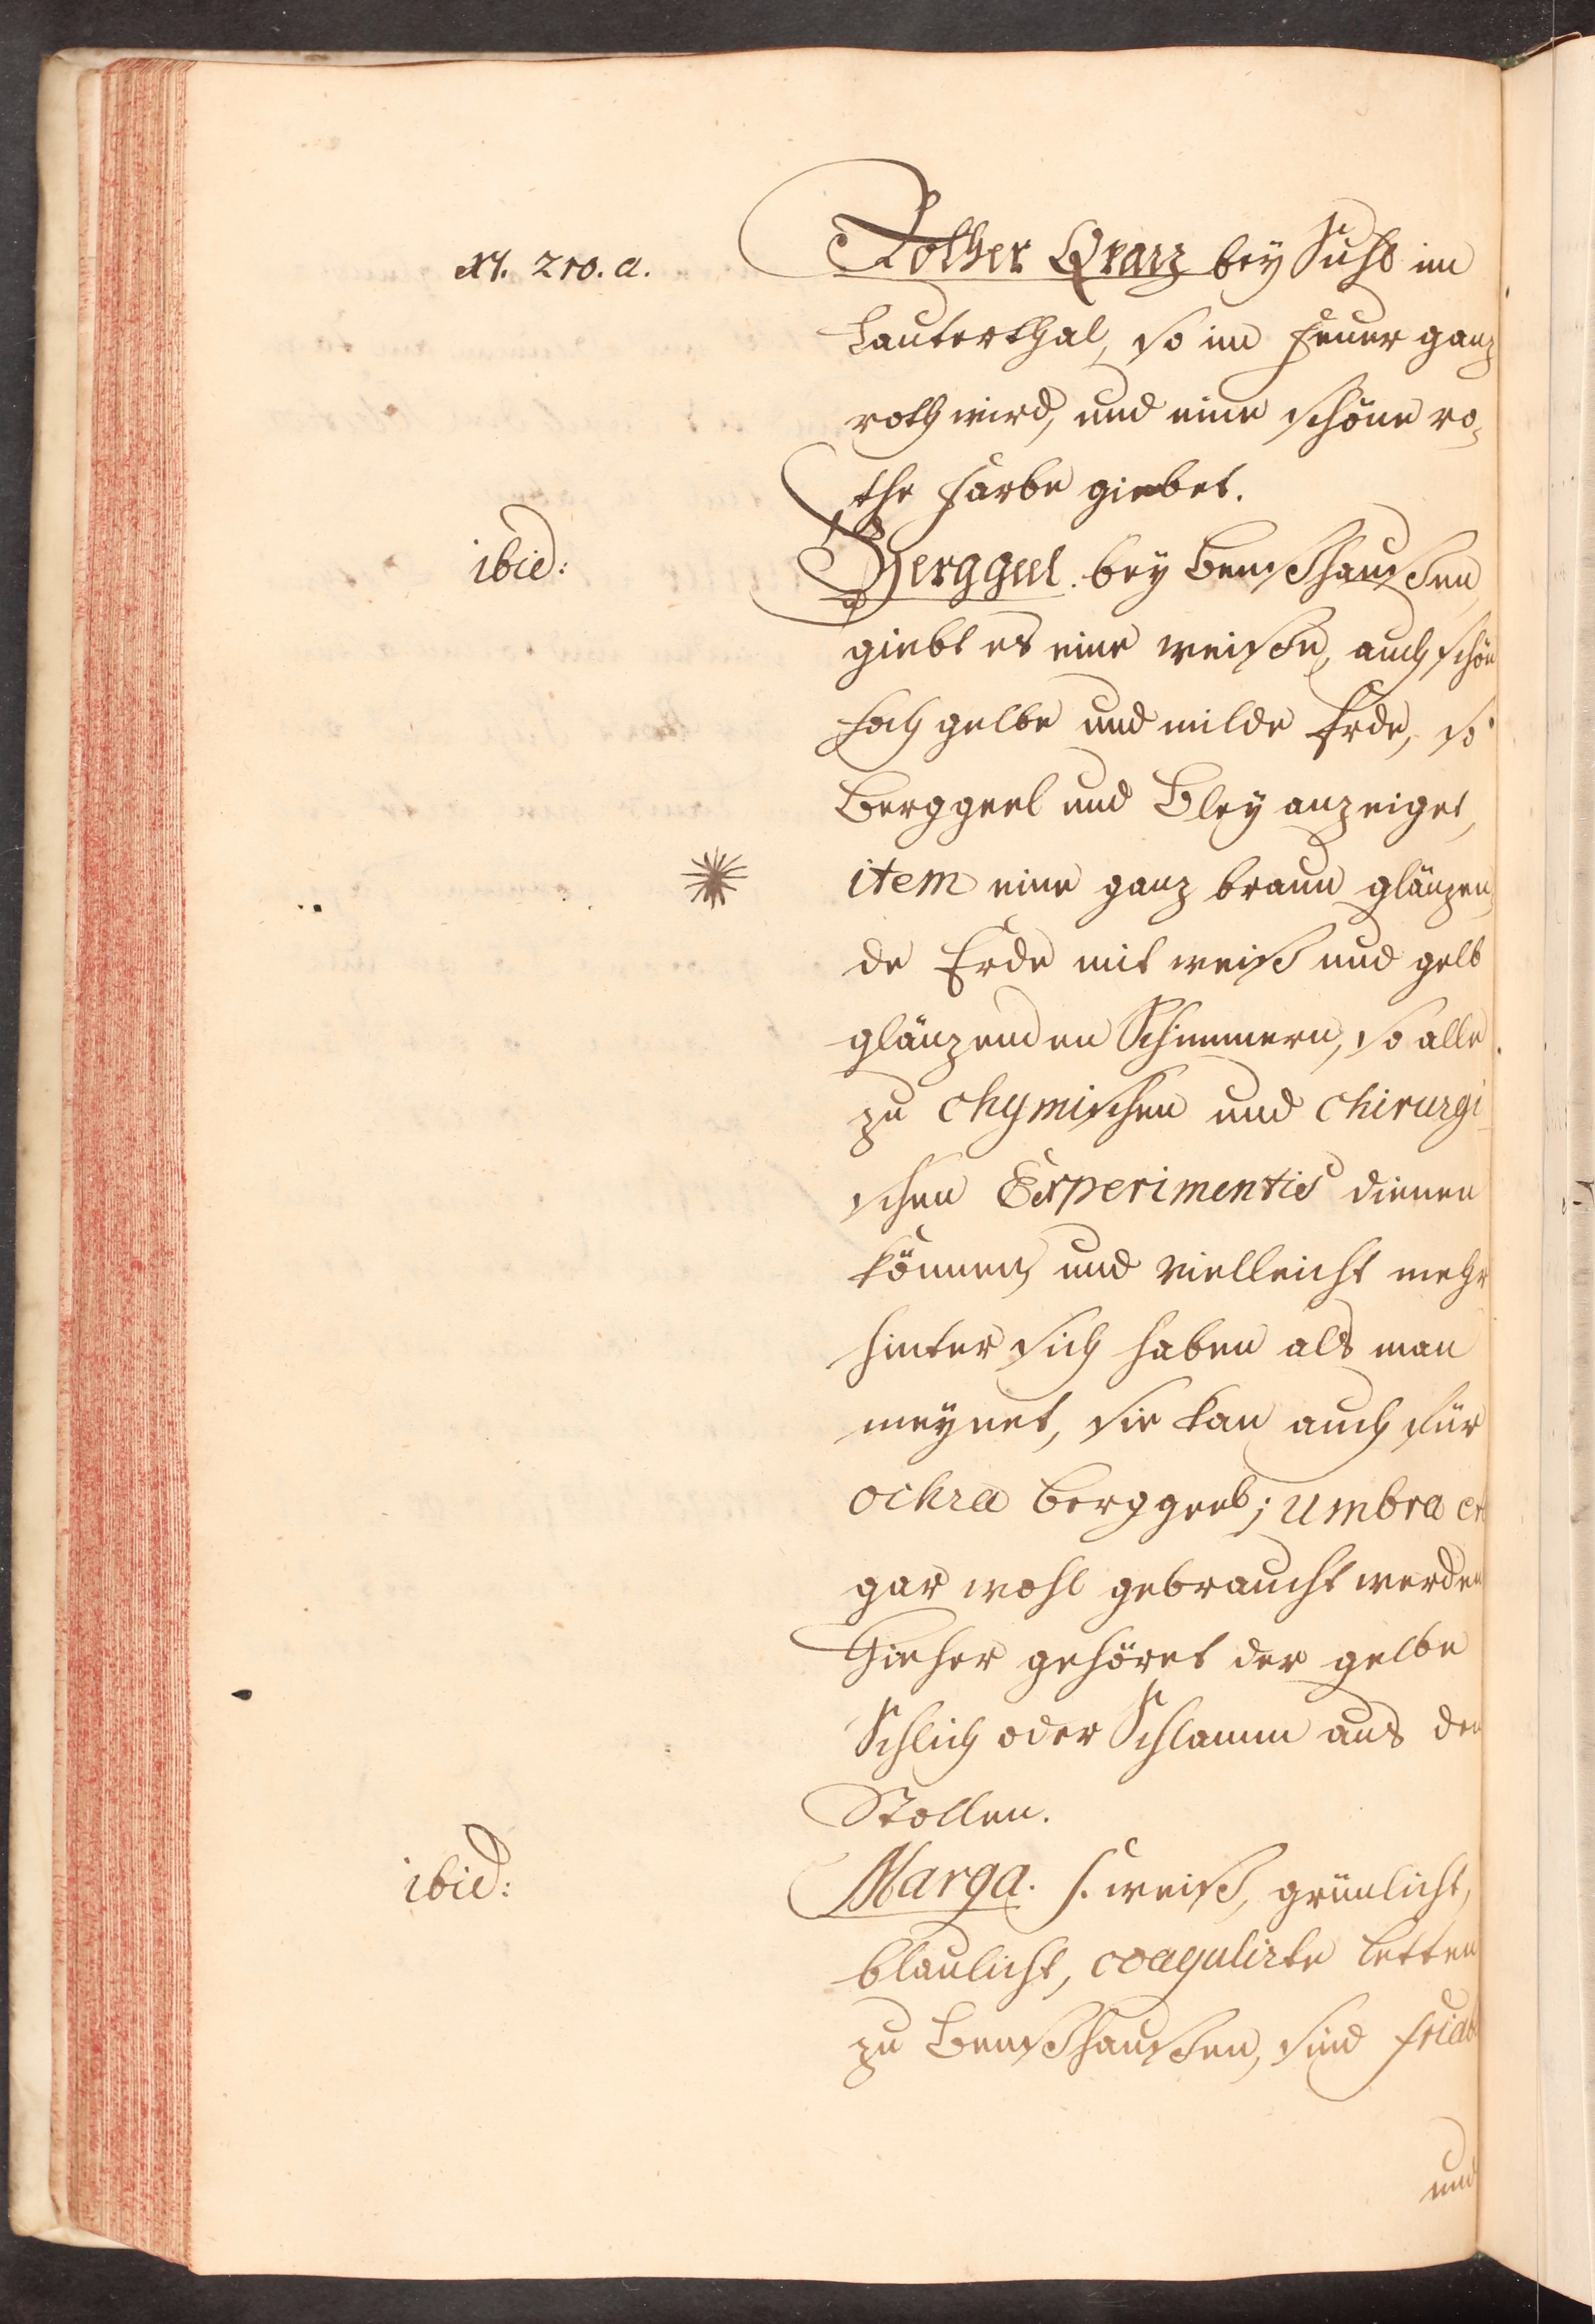 XI. 210. a.
Rother Qvarz bey Suhl im
Lauterthal, so im Feuer ganz
roth wird, und eine schöne ro„
the Farbe giebet.
ibid:
Berggeel. bey Benßhaußen,
giebt es eine weiße, auch schön
hoch gelbe und milde Erde, so
Berggeel und Bley anzeiget,
item eine ganz braun glänzen„
de Erde mit weiß und gelb
glänzenden Schimmern, so alle
zu chymischen und chirurgi„
schen Experimentis dienen
können, und vielleicht mehr
hinter sich haben als man
meynet, sie kan auch für
ochra Berggeel; umbra
gar wohl gebraucht werden
Hieher gehöret der gelbe
Schlich oder Schlamm aus den
Stollen.
ibid:
Marga. s. weiß, grünlicht,
blaulicht, coagulirte Letten
zu Benßhaußen, sind friab
und